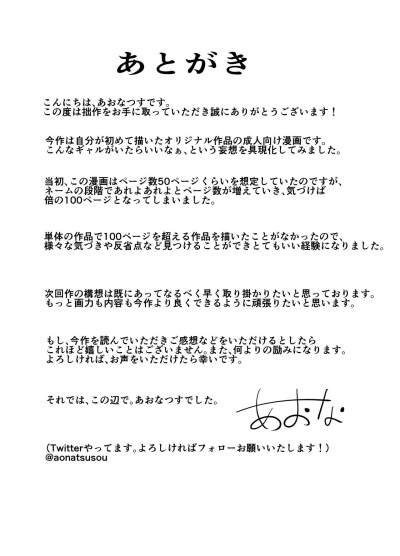 あとがき
こんにちは、あおなつすです。
この度は拙作をお手に取っていただき誠にありがとうございます！
今作は自分が初めて描いたオリジナル作品の成人向け漫画です。
こんなギャルがいたらいいなぁ、という妄想を具現化してみました。
当初、この漫画はページ数50ページくらいを想定していたのですが、
ネームの段階であれよあれよとページ数が増えていき、気づけば
倍の100ページとなってしまいました。
単体の作品で100ページを超える作品を描いたことがなかったので、
様々な気づきや反省点など見つけることができとてもいい経験になりました。
次回作の構想は既にあってなるべく早く取り掛かりたいと思っております。
もっと画力も内容も今作より良くできるように頑張りたいと思います。
もし、今作を読んでいただきご感想などをいただけるとしたら
これほど嬉しいことはございません。また、何よりの励みになります。
よろしければ、お声をいただけたら幸いです。
それでは、この辺で。あおなつすでした。
あおな
（Twitterやってます。よろしければフォローお願いいたします！）
@aonatsusou